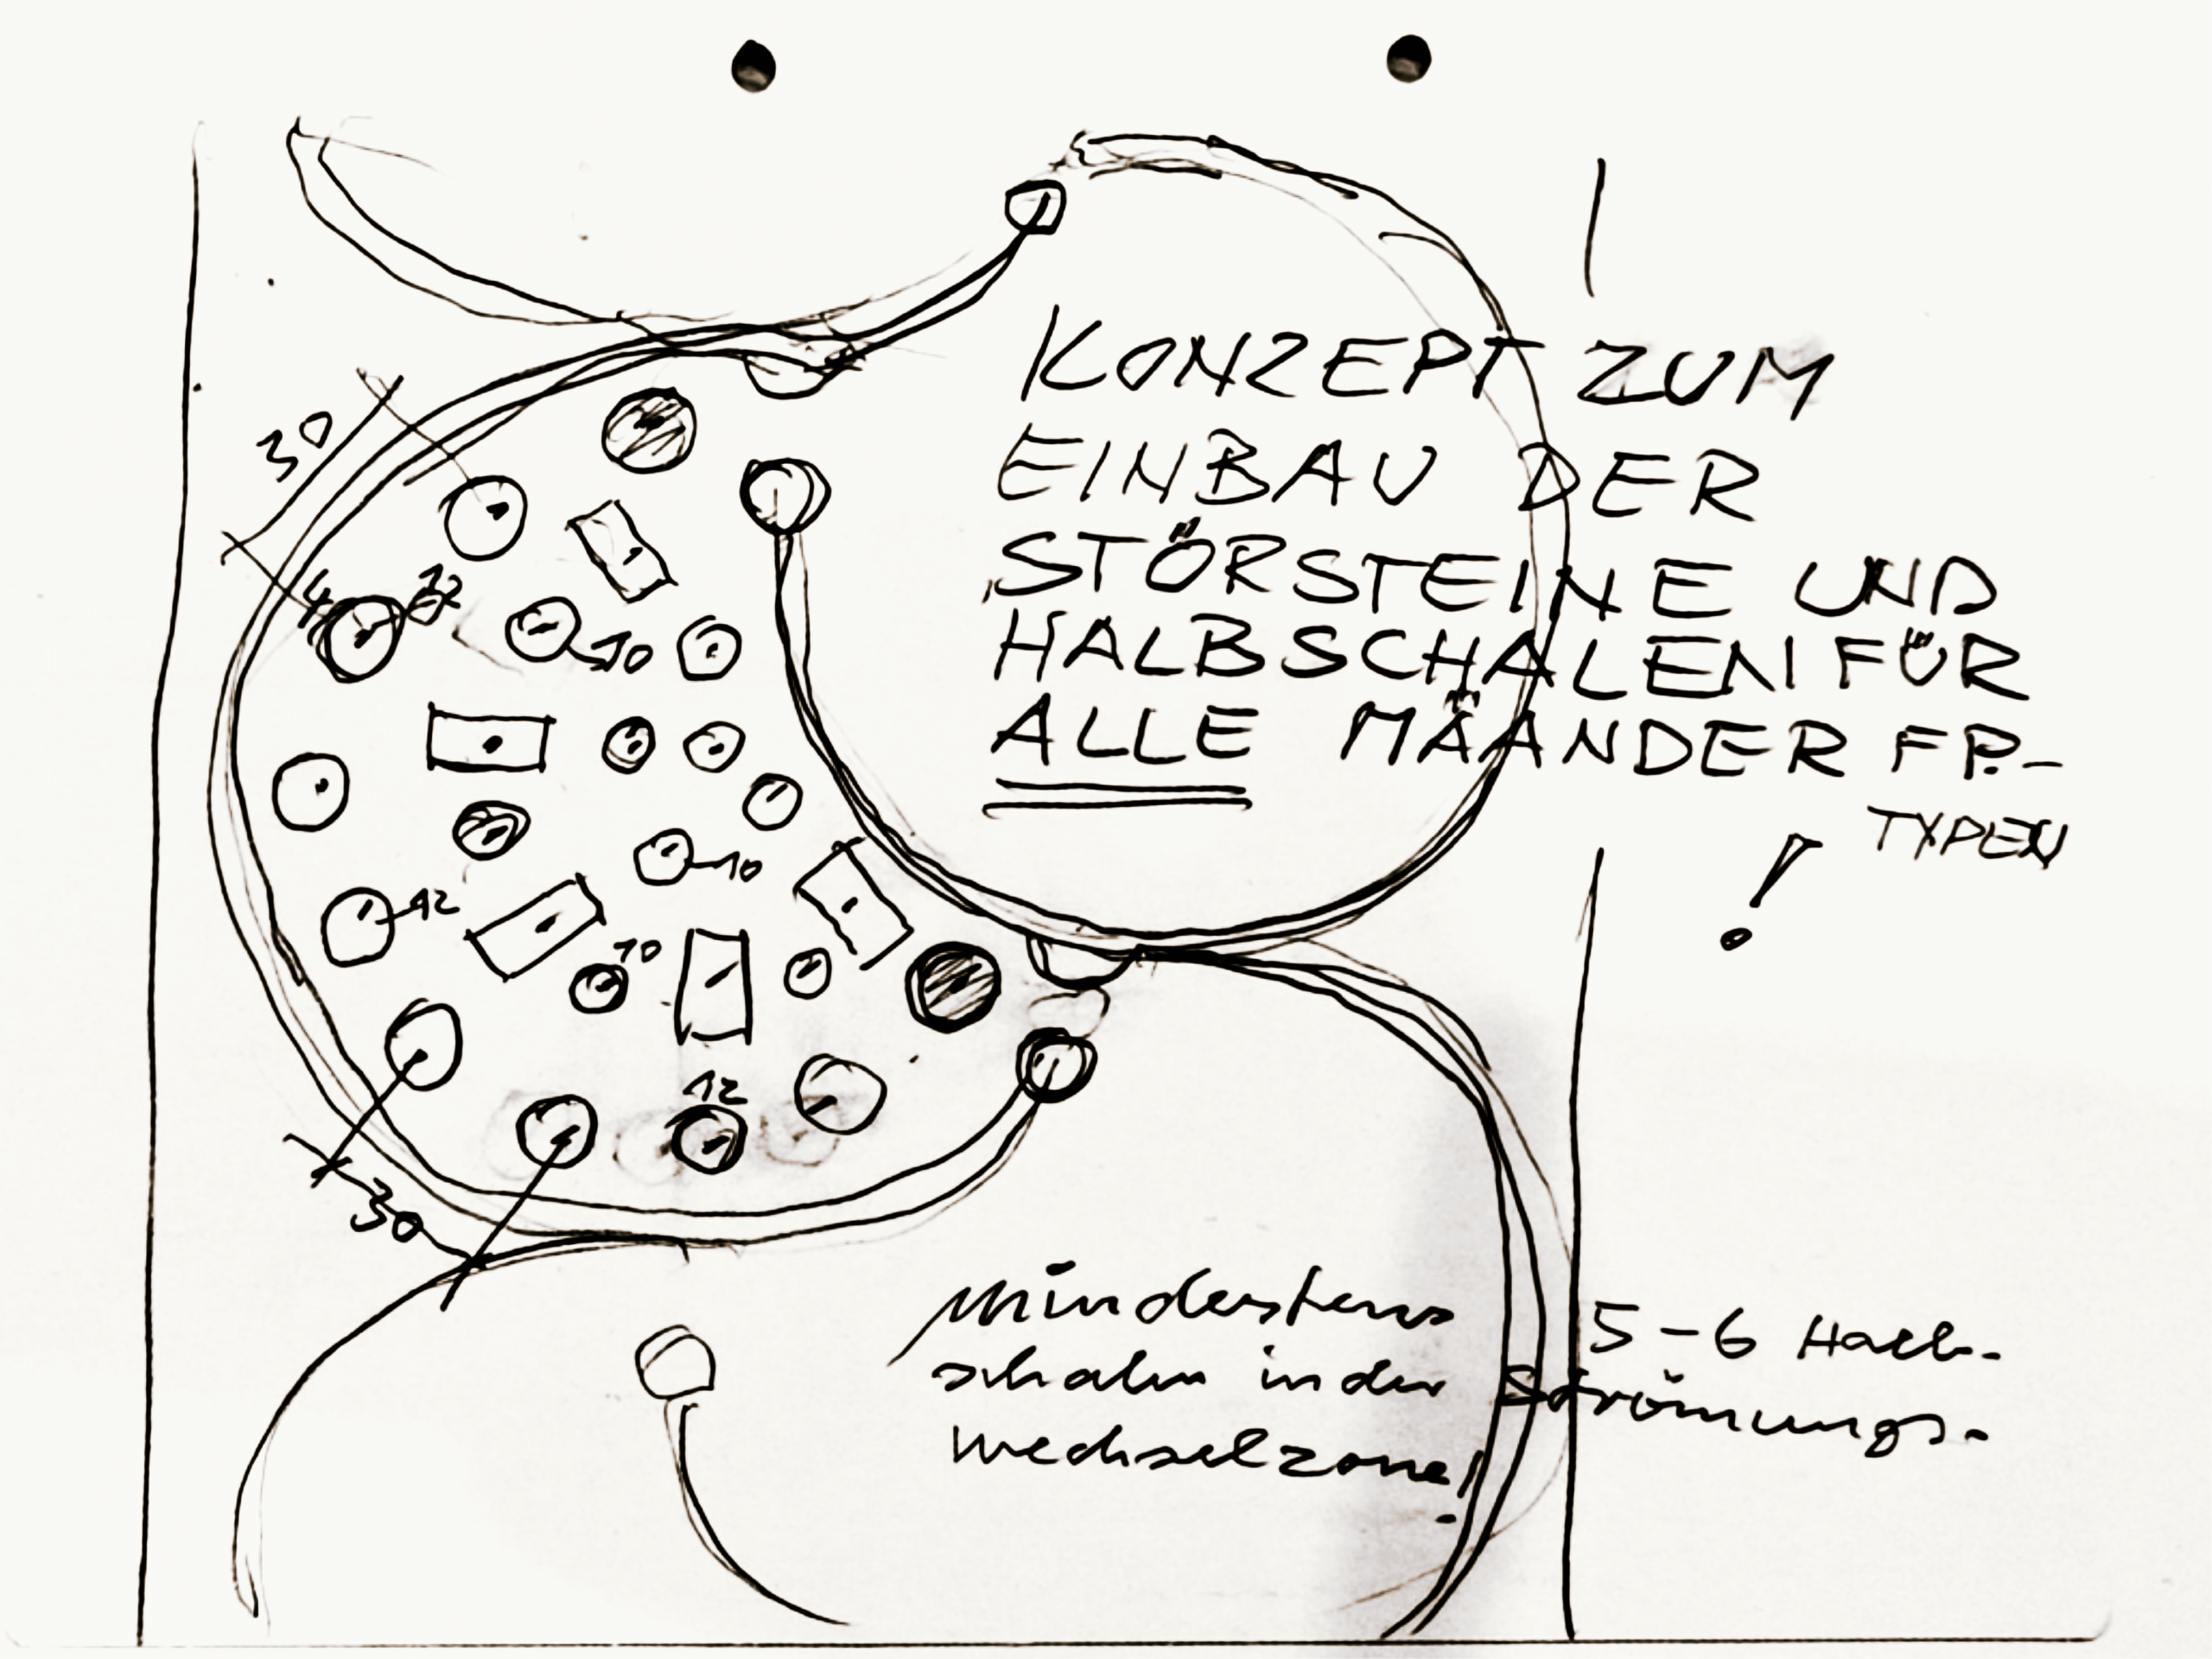 KONZEPT ZUM
EINBAU DER
STÖRSTEINE UND
HALBSCHALEN FÜR
ALLE MÄANDER FP.-
TYPEN
!
30
12
10
10
12
10
12
30
mindestens 5-6 Halb-
schalen in der Strömungs-
wechselzone!